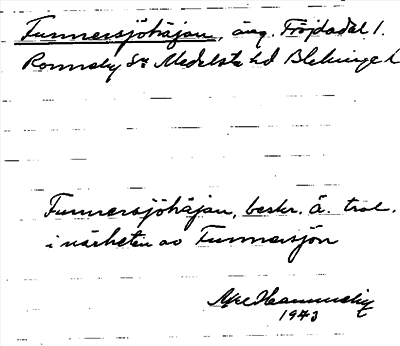 Tunnersjöhäjan, äng. Fröjdadal 1.
Ronneby Sn Medelsta hd Blekinge l.
Tunnersjöhäjan, beskr. ä. trol.
i närheten av Tunnersjön
1943